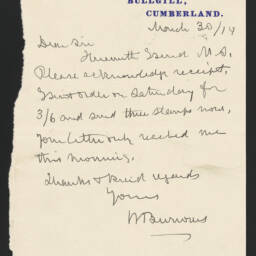 BULLGILL,
CUMBERLAND.
March 30/14
Dear Sir
Herewith I send M.O.
Please acknowledge receipt,
I sent order on Saturday for
3/6 and send three stamps now,
your letter only reached me
this morning.
Thanks & kind regards
Yours
W Burrows